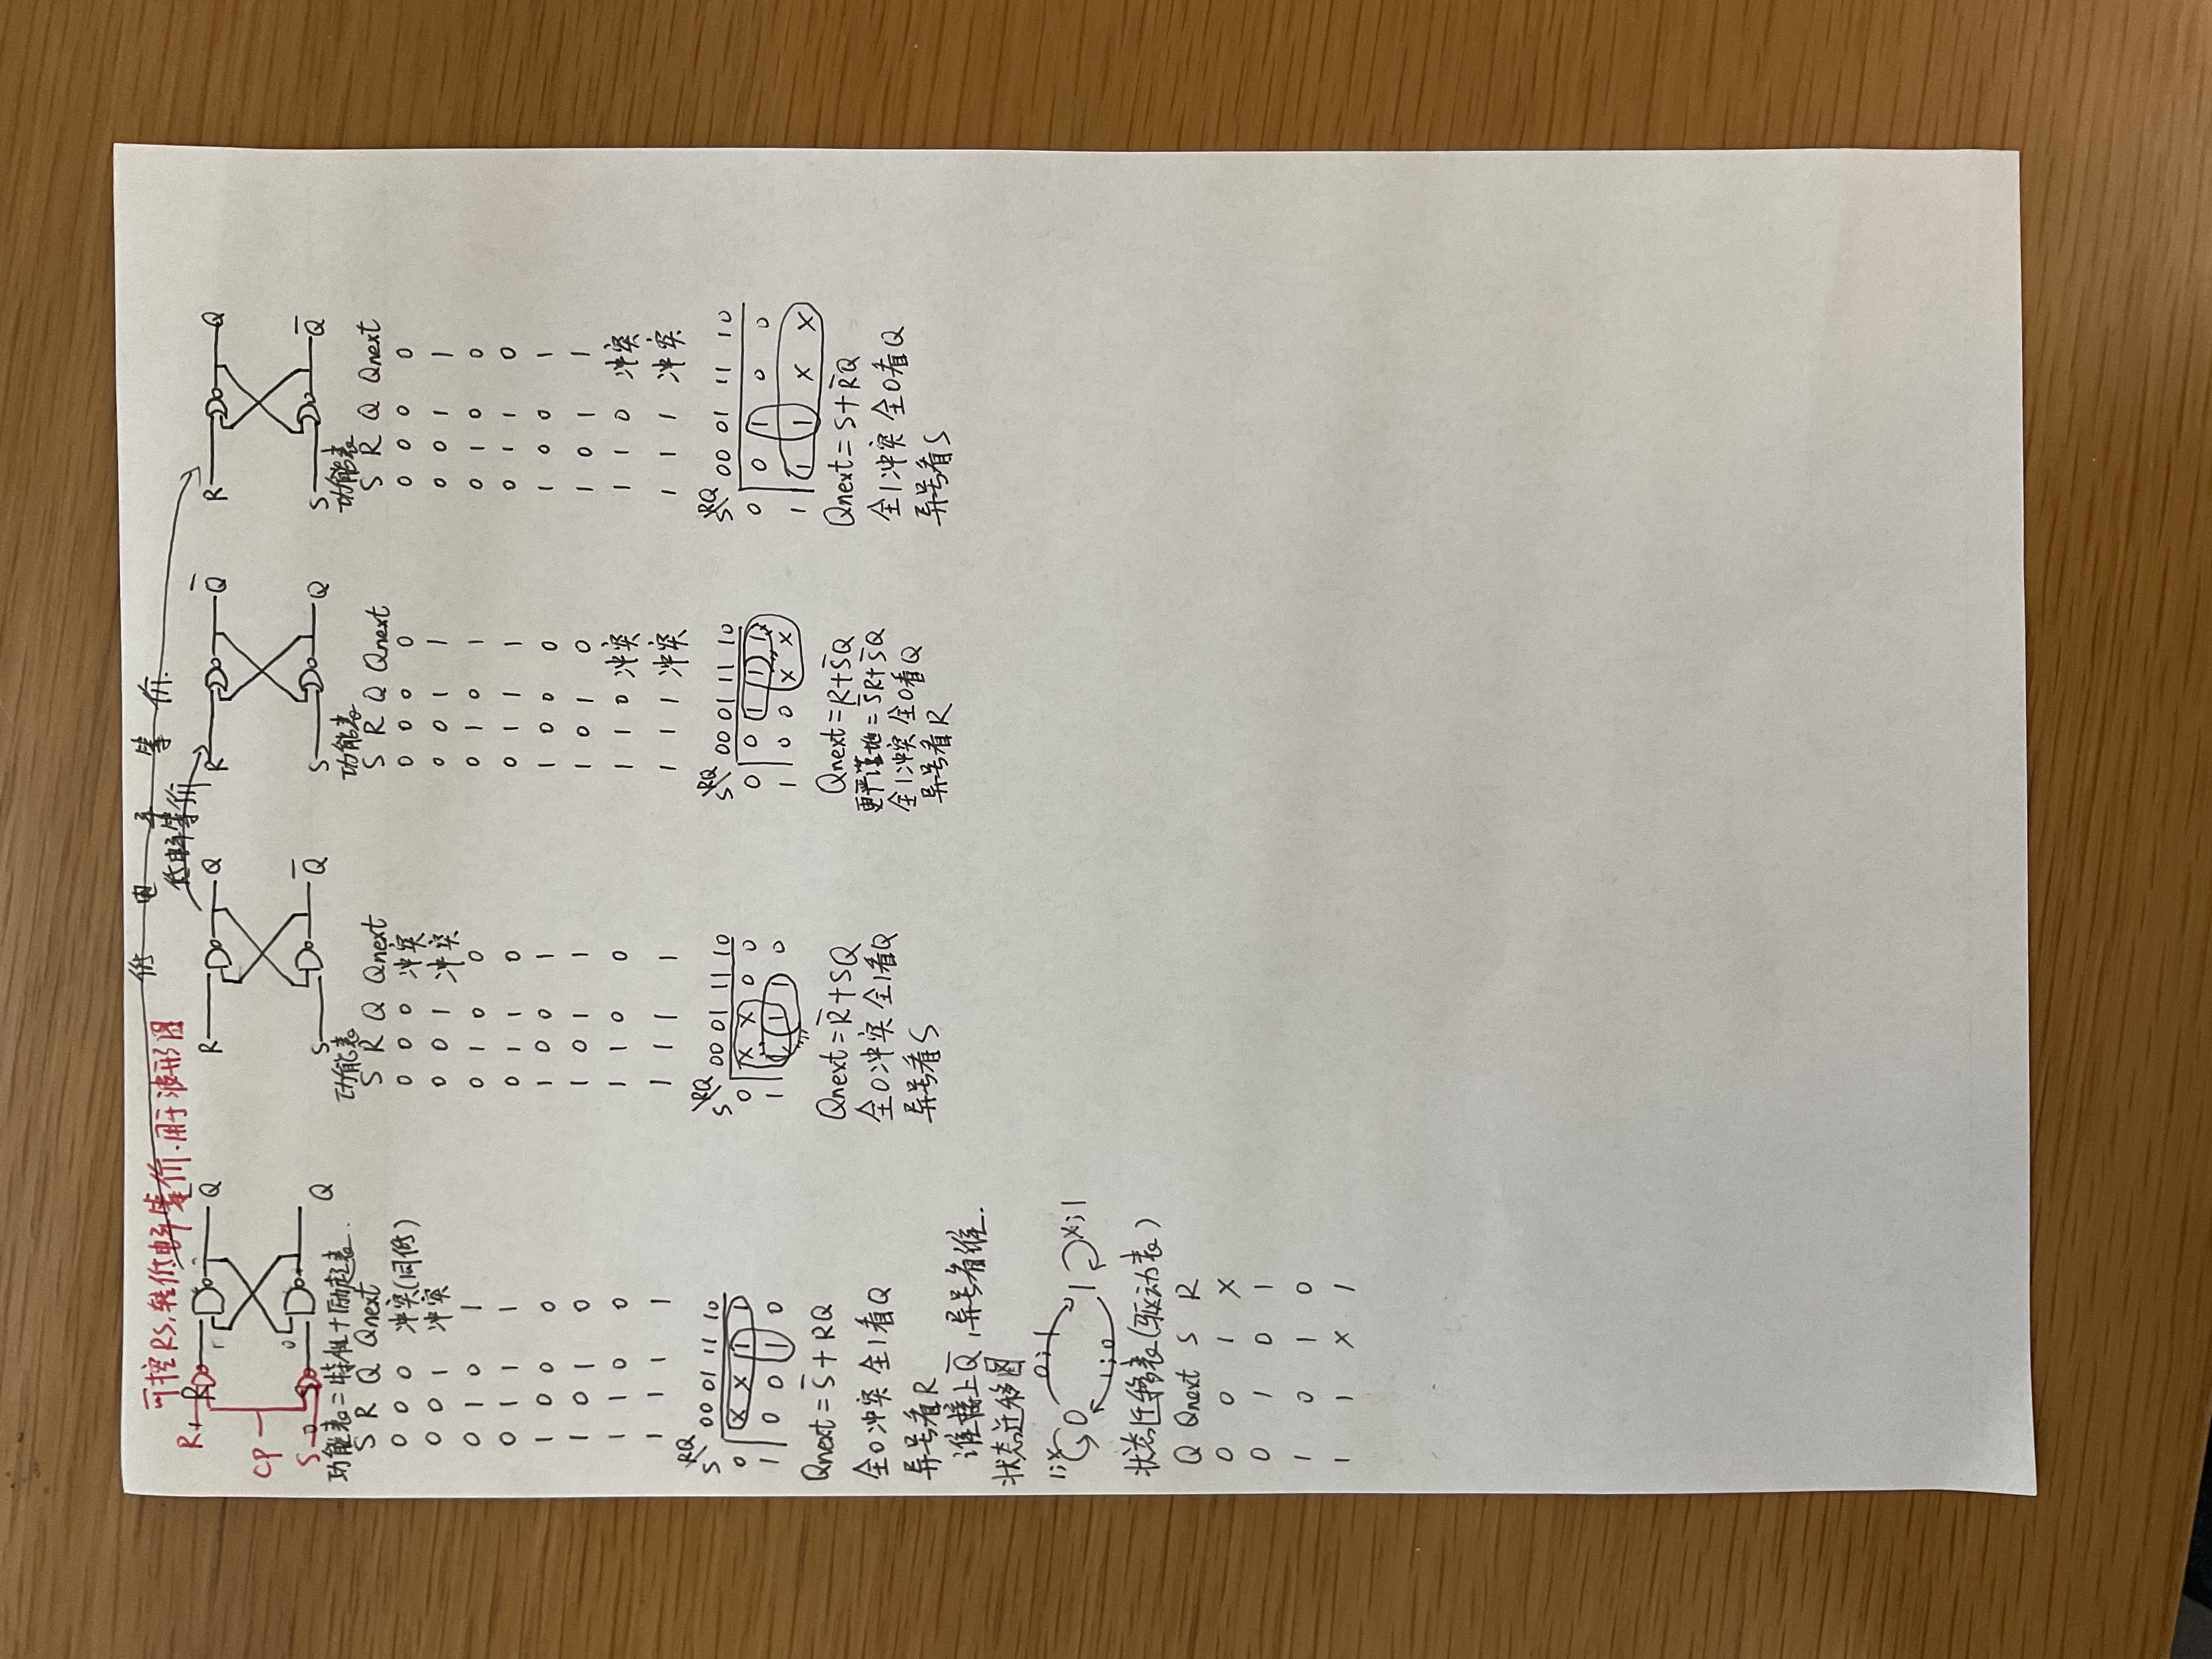 可控RS,转低电平等价.用于波形图
低电平等价.
低电平等价
R R
Q̅
CP
S
Q
R Q
S Q̅
R Q̅
S Q
R Q
S Q̅
功能表=特性+励起表.
S R Q Qnext
0 0 0 冲突(同低)
0 0 1 冲突
0 1 0 1
0 1 1 1
1 0 0 0
1 0 1 0
1 1 0 0
1 1 1 1
S\RQ 00 01 11 10
0 X X 1 1
1 0 0 1 0
Qnext = S̅ + RQ
全0冲突 全1看Q
异号看R
谁接上Q̅,异号看谁.
状态迁移图
0;1
1;X 0 1 X;1
1;0
状态迁移表(驱动表)
Q Qnext S R
0 0 1 X
0 1 0 1
1 0 1 0
1 1 X 1
功能表
S R Q Qnext
0 0 0 冲突
0 0 1 冲突
0 1 0 0
0 1 1 0
1 0 0 1
1 0 1 1
1 1 0 0
1 1 1 1
S\RQ 00 01 11 10
0 X X 0 0
1 1 1 1 0
Qnext = R̅ + SQ
全0冲突 全1看Q
异号看S
功能表
S R Q Qnext
0 0 0 0
0 0 1 1
0 1 0 1
0 1 1 1
1 0 0 0
1 0 1 0
1 1 0 冲突
1 1 1 冲突
S\RQ 00 01 11 10
0 0 1 1 1
1 0 0 X X
Qnext = R + S̅Q
更严谨地 = S̅R + S̅Q
全1冲突 全0看Q
异号看R
功能表
S R Q Qnext
0 0 0 0
0 0 1 1
0 1 0 0
0 1 1 0
1 0 0 1
1 0 1 1
1 1 0 冲突
1 1 1 冲突
S\RQ 00 01 11 10
0 0 1 0 0
1 1 1 X X
Qnext = S + R̅Q
全1冲突 全0看Q
异号看S